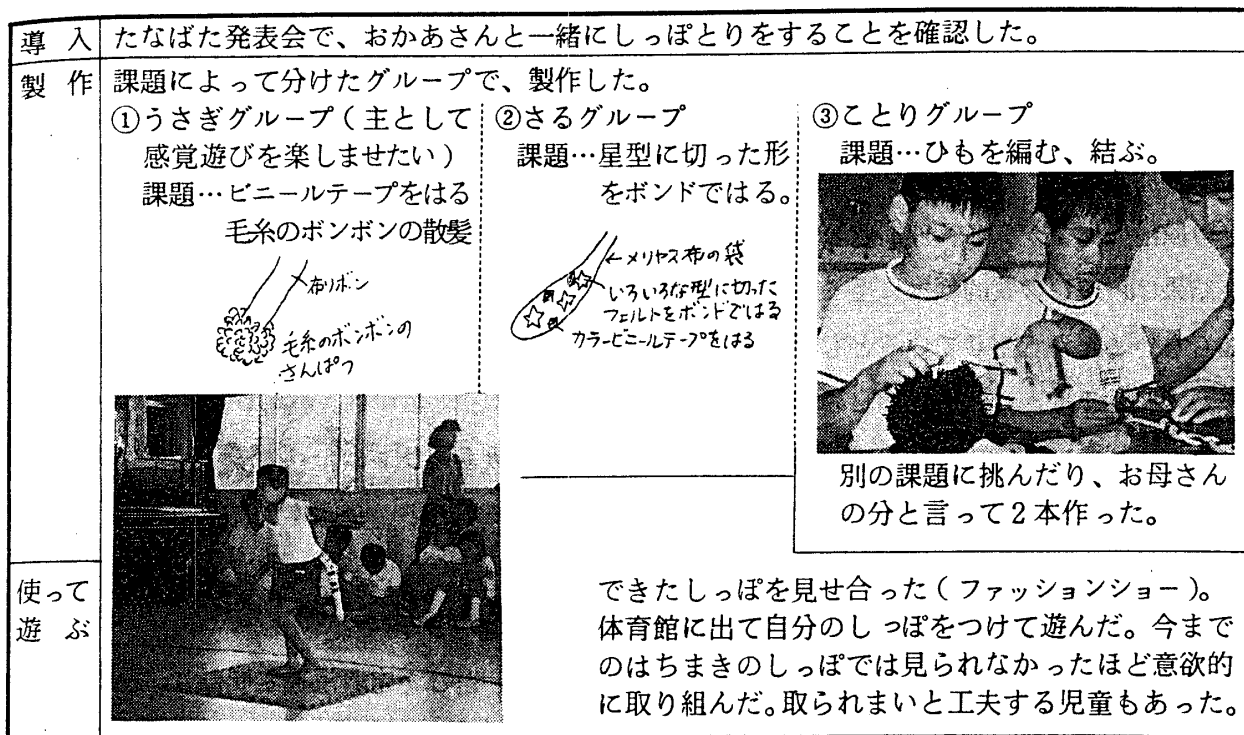 導 入
たなばた発表会で、おかあさんと一緒にしっぽとりをすることを確認した。
製 作
課題によって分けたグループで、製作した。
①うさぎグループ(主として
感覚遊びを楽しませたい)
課題…ビニールテープをはる
毛糸のボンボンの散髪
布リボン
毛糸のボンボンの
さんぱつ
②さるグループ
課題…星型に切った形
をボンドではる。
メリヤス布の袋
いろいろな型に切った
フェルトをボンドではる
カラービニールテープをはる
③ことりグループ
課題…ひもを編む、結ぶ。
別の課題に挑んだり、お母さん
の分と言って2本作った。
使って
遊 ぶ
できたしっぽを見せ合った(ファッションショー)。
体育館に出て自分のしっぽをつけて遊んだ。今まで
のはちまきのしっぽでは見られなかったほど意欲的
に取り組んだ。取られまいと工夫する児童もあった。